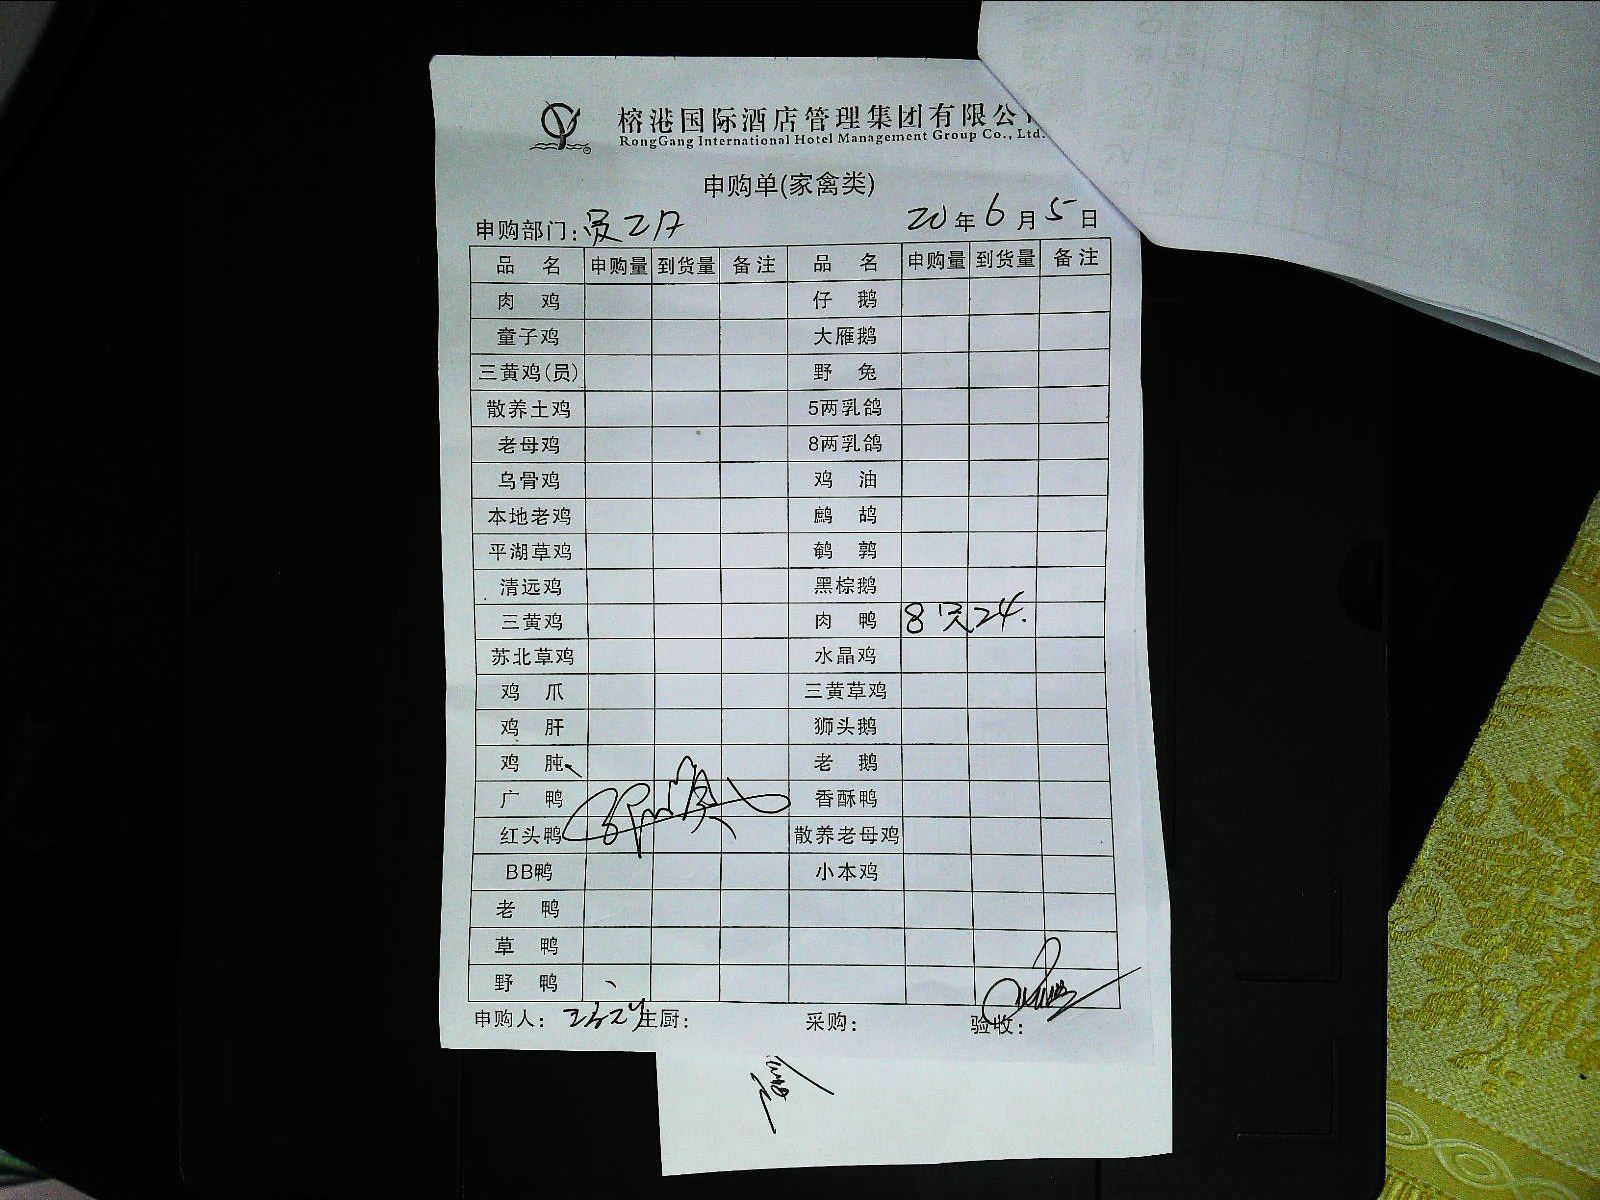 榕港国际酒店管理集团有限公
RongGang International Hotel Management Group Co., Ltd.
申购单(家禽类)
申购部门: 20年6月5日
品 名 申购量 到货量 备注 品 名 申购量 到货量 备注
肉 鸡 仔 鹅
童子鸡 大雁鹅
三黄鸡(员) 野 兔
散养土鸡 5两乳鸽
老母鸡 8两乳鸽
乌骨鸡 鸡 油
本地老鸡 鹧 鸪
平湖草鸡 鹌 鹑
清远鸡 黑棕鹅
三黄鸡 肉 鸭 8只 24.
苏北草鸡 水晶鸡
鸡 爪 三黄草鸡
鸡 肝 狮头鹅
鸡 肫 老 鹅
广 鸭 香酥鸭
红头鸭 散养老母鸡
BB鸭 小本鸡
老 鸭
草 鸭
野 鸭
申购人: 主厨: 采购: 验收: